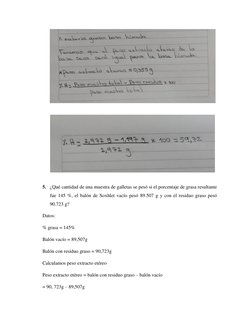 % materia grasa base húmeda
Tenemos que el peso extracto etereo de la
base seca será igual para la base húmeda
* Peso extracto etereo = 0,359g
% H = Peso muestra total - Peso residuo x 100
peso muestra total
% H = 2,972 g - 1,197 g x 100 = 59,72
2,972 g
5. ¿Qué cantidad de una muestra de galletas se pesó si el porcentaje de grasa resultante
fue 145 %, el balón de Soxhlet vacío pesó 89.507 g y con el residuo graso pesó
90.723 g?
Datos:
% grasa = 145%
Balón vacío = 89,507g
Balón con residuo graso = 90,723g
Calculamos peso extracto etéreo
Peso extracto etéreo = balón con residuo graso – balón vacío
= 90, 723g – 89,507g